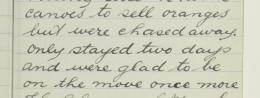 canoes to sell oranges
but were chased away.
only stayed two days
and were glad to be
on the move once more